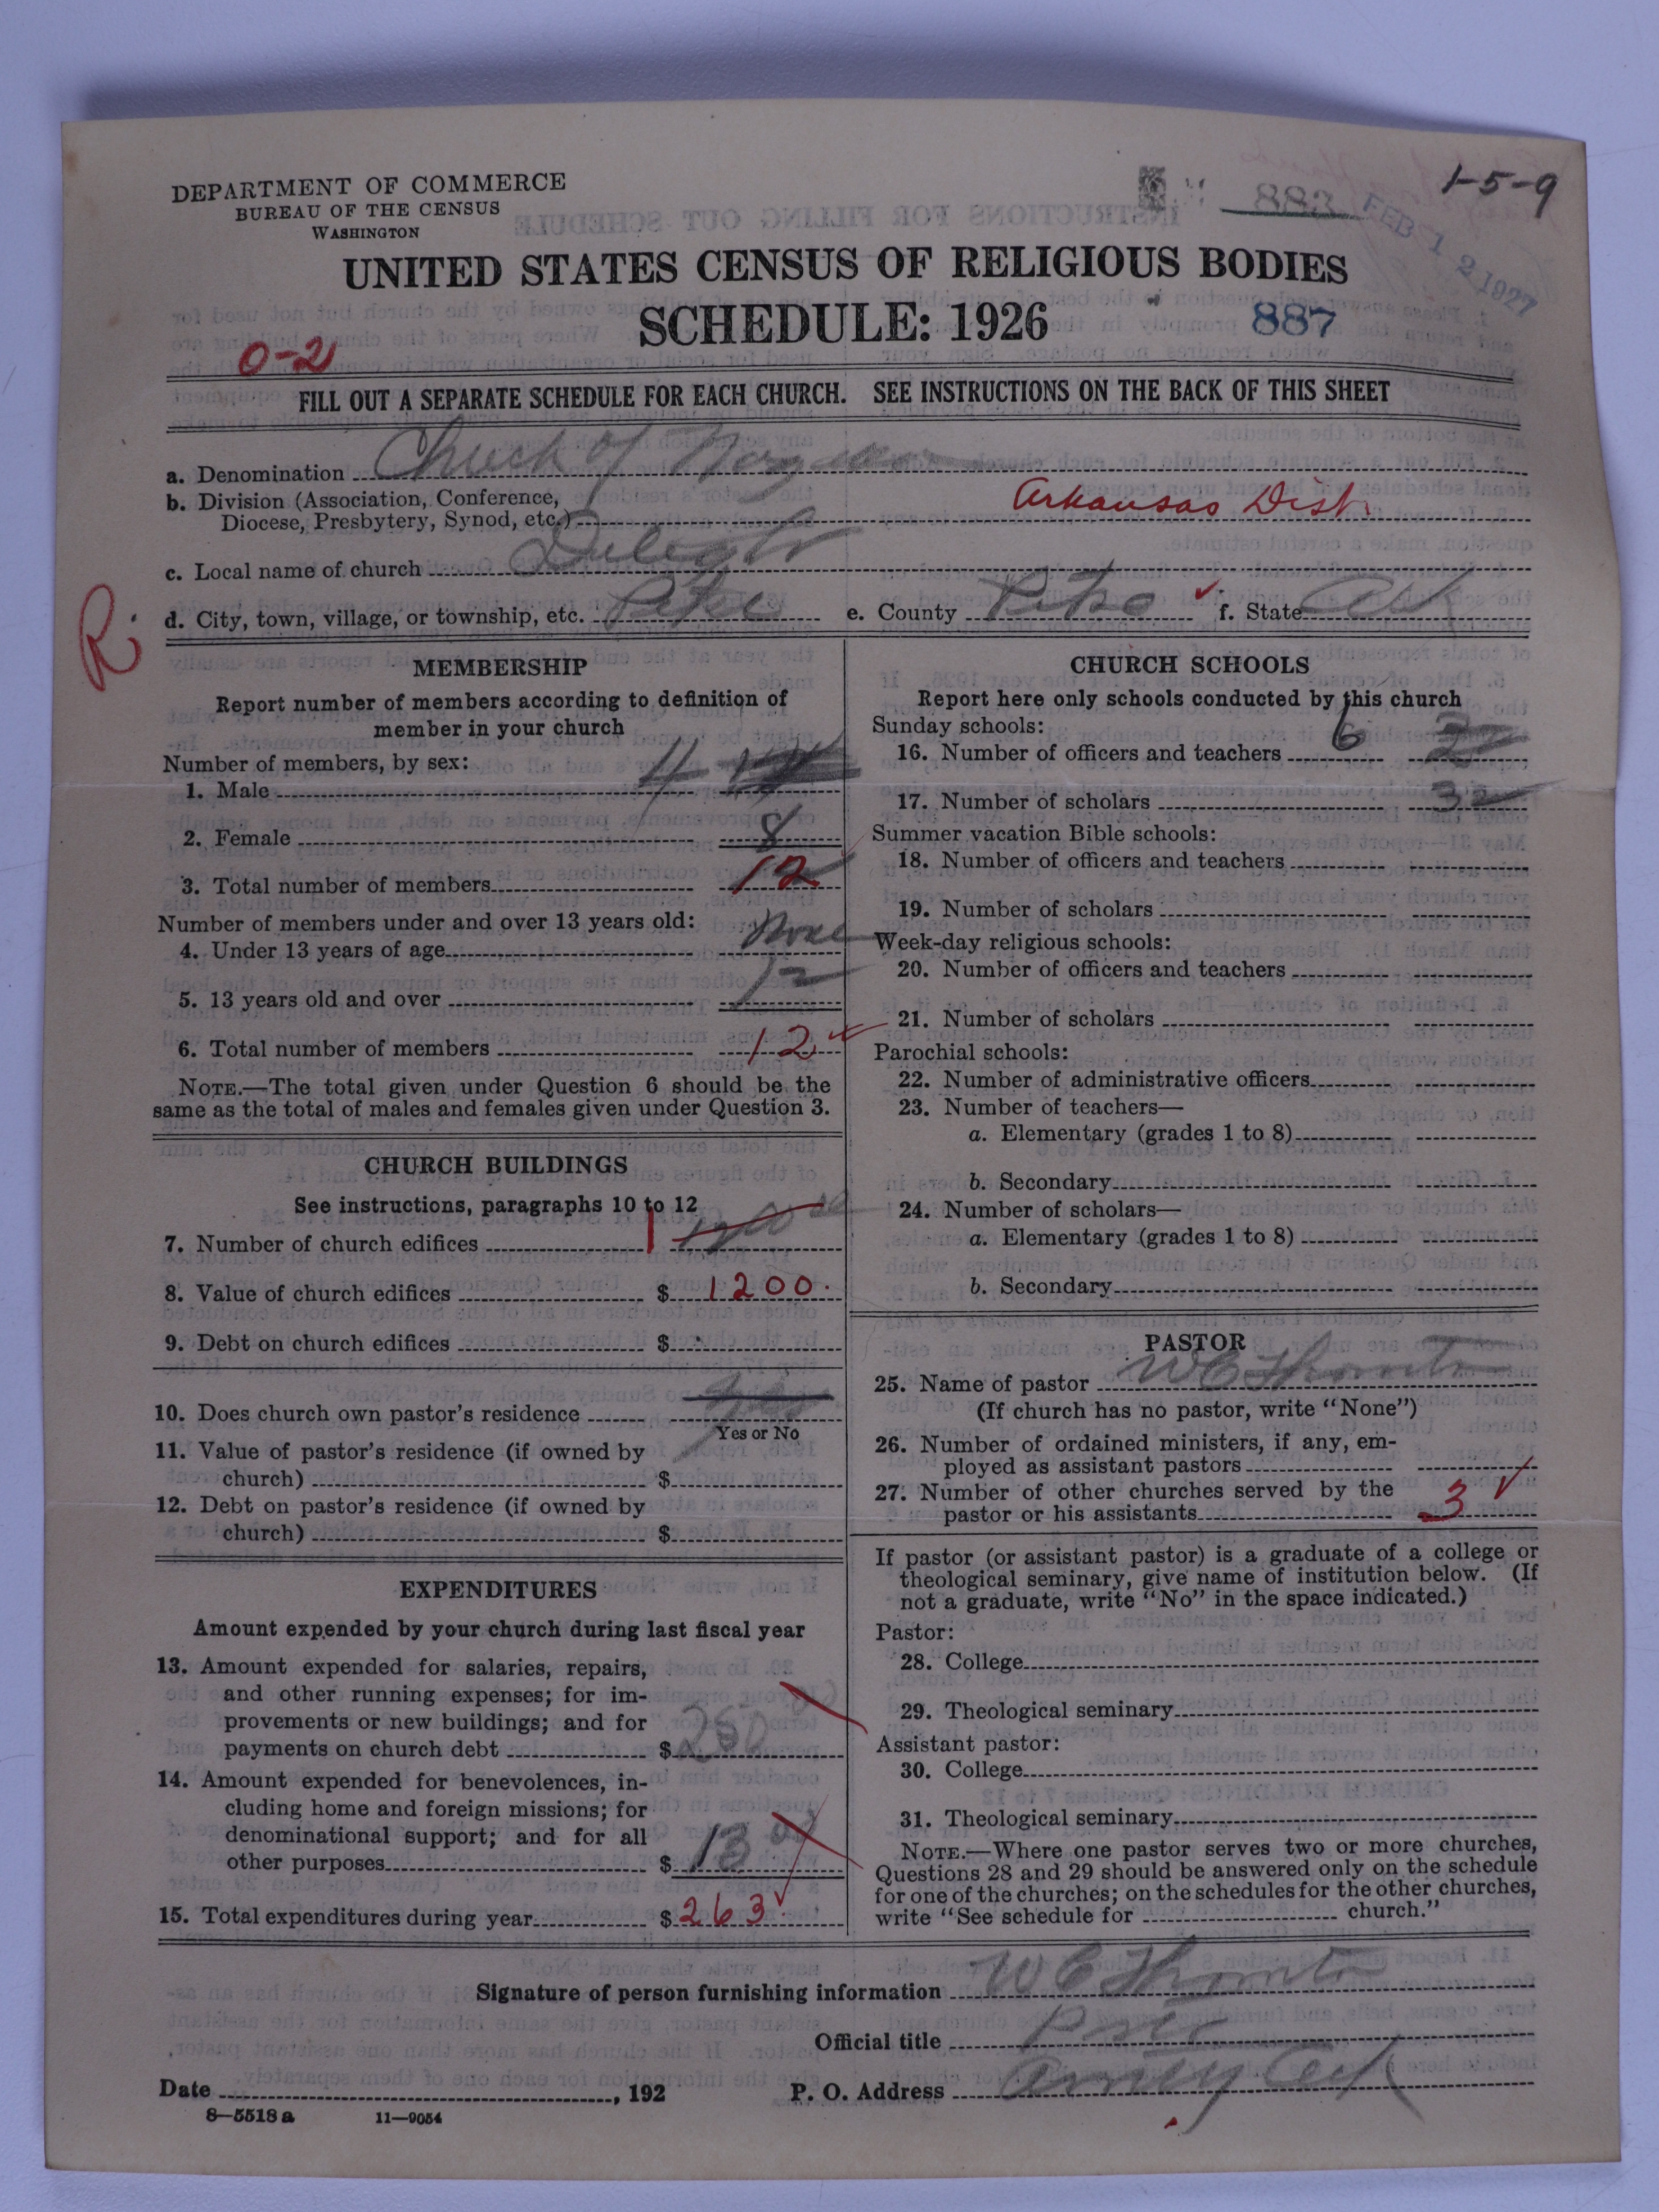 DEPARTMENT OF COMMERCE
BUREAU OF THE CENSUS
WASHINGTON
883
1-5-9
FEB 12 1927
UNITED STATES CENSUS OF RELIGIOUS BODIES
SCHEDULE: 1926
887
0-2
FILL OUT A SEPARATE SCHEDULE FOR EACH CHURCH. SEE INSTRUCTIONS ON THE BACK OF THIS SHEET
a. Denomination Church of
b. Division (Association, Conference,
Diocese, Presbytery, Synod, etc.) Arkansas Dist.
c. Local name of church
R.
d. City, town, village, or township, etc. Pike e. County Pike f. State Ark
MEMBERSHIP
Report number of members according to definition of
member in your church
Number of members, by sex:
1. Male 4
2. Female 8
3. Total number of members 12
Number of members under and over 13 years old:
4. Under 13 years of age None
5. 13 years old and over 12
6. Total number of members 12
NOTE.—The total given under Question 6 should be the
same as the total of males and females given under Question 3.
CHURCH BUILDINGS
See instructions, paragraphs 10 to 12
7. Number of church edifices 1 1200
8. Value of church edifices $ 1200.
9. Debt on church edifices $
10. Does church own pastor's residence
Yes or No
11. Value of pastor's residence (if owned by
church) $
12. Debt on pastor's residence (if owned by
church) $
EXPENDITURES
Amount expended by your church during last fiscal year
13. Amount expended for salaries, repairs,
and other running expenses; for im-
provements or new buildings; and for
payments on church debt $ 250
14. Amount expended for benevolences, in-
cluding home and foreign missions; for
denominational support; and for all
other purposes $ 13 00
15. Total expenditures during year $ 263
CHURCH SCHOOLS
Report here only schools conducted by this church
Sunday schools:
16. Number of officers and teachers 6
17. Number of scholars 32
Summer vacation Bible schools:
18. Number of officers and teachers
19. Number of scholars
Week-day religious schools:
20. Number of officers and teachers
21. Number of scholars
Parochial schools:
22. Number of administrative officers
23. Number of teachers—
a. Elementary (grades 1 to 8)
b. Secondary
24. Number of scholars—
a. Elementary (grades 1 to 8)
b. Secondary
PASTOR
25. Name of pastor W C Thornton
(If church has no pastor, write "None")
26. Number of ordained ministers, if any, em-
ployed as assistant pastors
27. Number of other churches served by the
pastor or his assistants 3
If pastor (or assistant pastor) is a graduate of a college or
theological seminary, give name of institution below. (If
not a graduate, write "No" in the space indicated.)
Pastor:
28. College
29. Theological seminary
Assistant pastor:
30. College
31. Theological seminary
NOTE.—Where one pastor serves two or more churches,
Questions 28 and 29 should be answered only on the schedule
for one of the churches; on the schedules for the other churches,
write "See schedule for church."
Signature of person furnishing information W C Thornton
Official title Pastor
Date , 192 P. O. Address Amity Ark
8—5518 a 11—9054